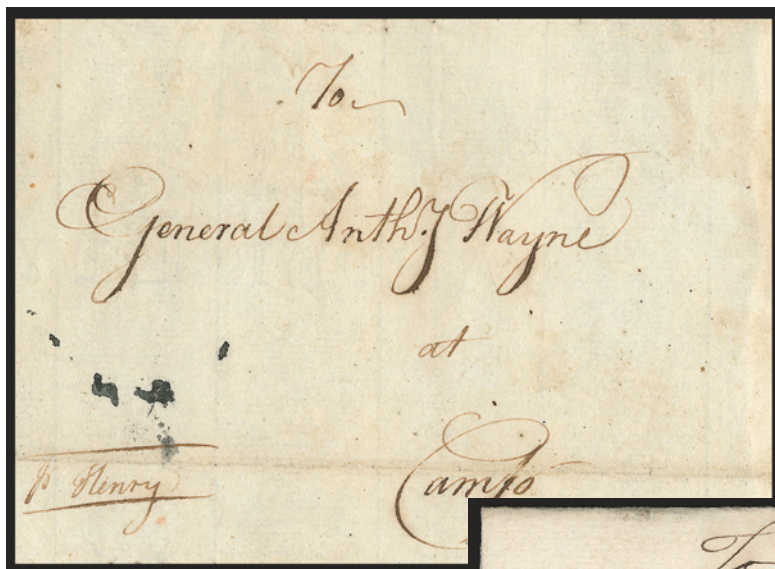 To
General Anthy Wayne
at
Camp
p Henry
To